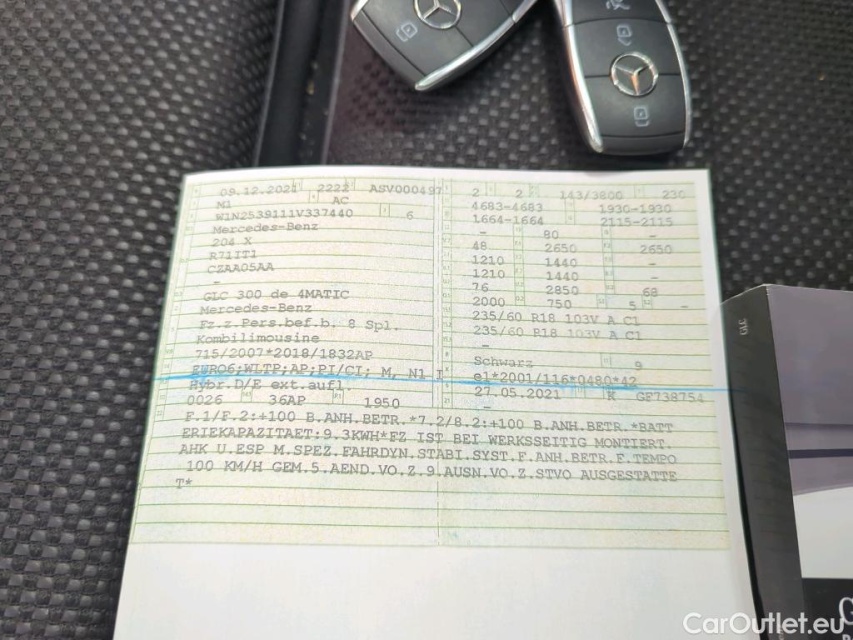 09.12.2021 2222 ASV000497
M1 AC
W1N2539111V337440 6
Mercedes-Benz
204 X
R71IT1
CZAA05AA
-
GLC 300 de 4MATIC
Mercedes-Benz
Fz.z.Pers.bef.b. 8 Spl.
Kombilimousine
715/2007*2018/1832AP
EURO6;WLTP;AP;PI/CI; M, N1 I
Hybr.D/E ext.aufl
0026 36AP 1950
2 2 143/3800 230
4683-4683 1930-1930
1664-1664 2115-2115
- 80 -
48 2650 2650
1210 1440 -
1210 1440 -
76 2850 68
2000 750 5
235/60 R18 103V A C1
235/60 R18 103V A C1
-
Schwarz 9
e1*2001/116*0480*42
27.05.2021 K GF738754
-
F.1/F.2:+100 B.ANH.BETR.*7.2/8.2:+100 B.ANH.BETR.*BATT
ERIEKAPAZITAET:9.3KWH*FZ IST BEI WERKSSEITIG MONTIERT.
AHK U.ESP M.SPEZ.FAHRDYN.STABI.SYST.F.ANH.BETR.F.TEMPO
100 KM/H GEM.5.AEND.VO.Z.9.AUSN.VO.Z.STVO AUSGESTATTE
T*
GLC
CarOutlet.eu